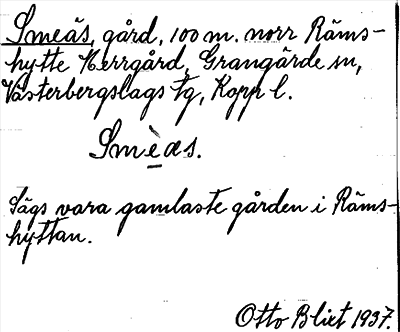 Smeås, gård, 100 m. norr Räms-
hytte Herrgård, Grangärde sn,
Västerbergslags tg, Kopp l.
Smèas.
Sägs vara gamlaste gården i Räms-
hyttan.
Otto Blixt 1937.